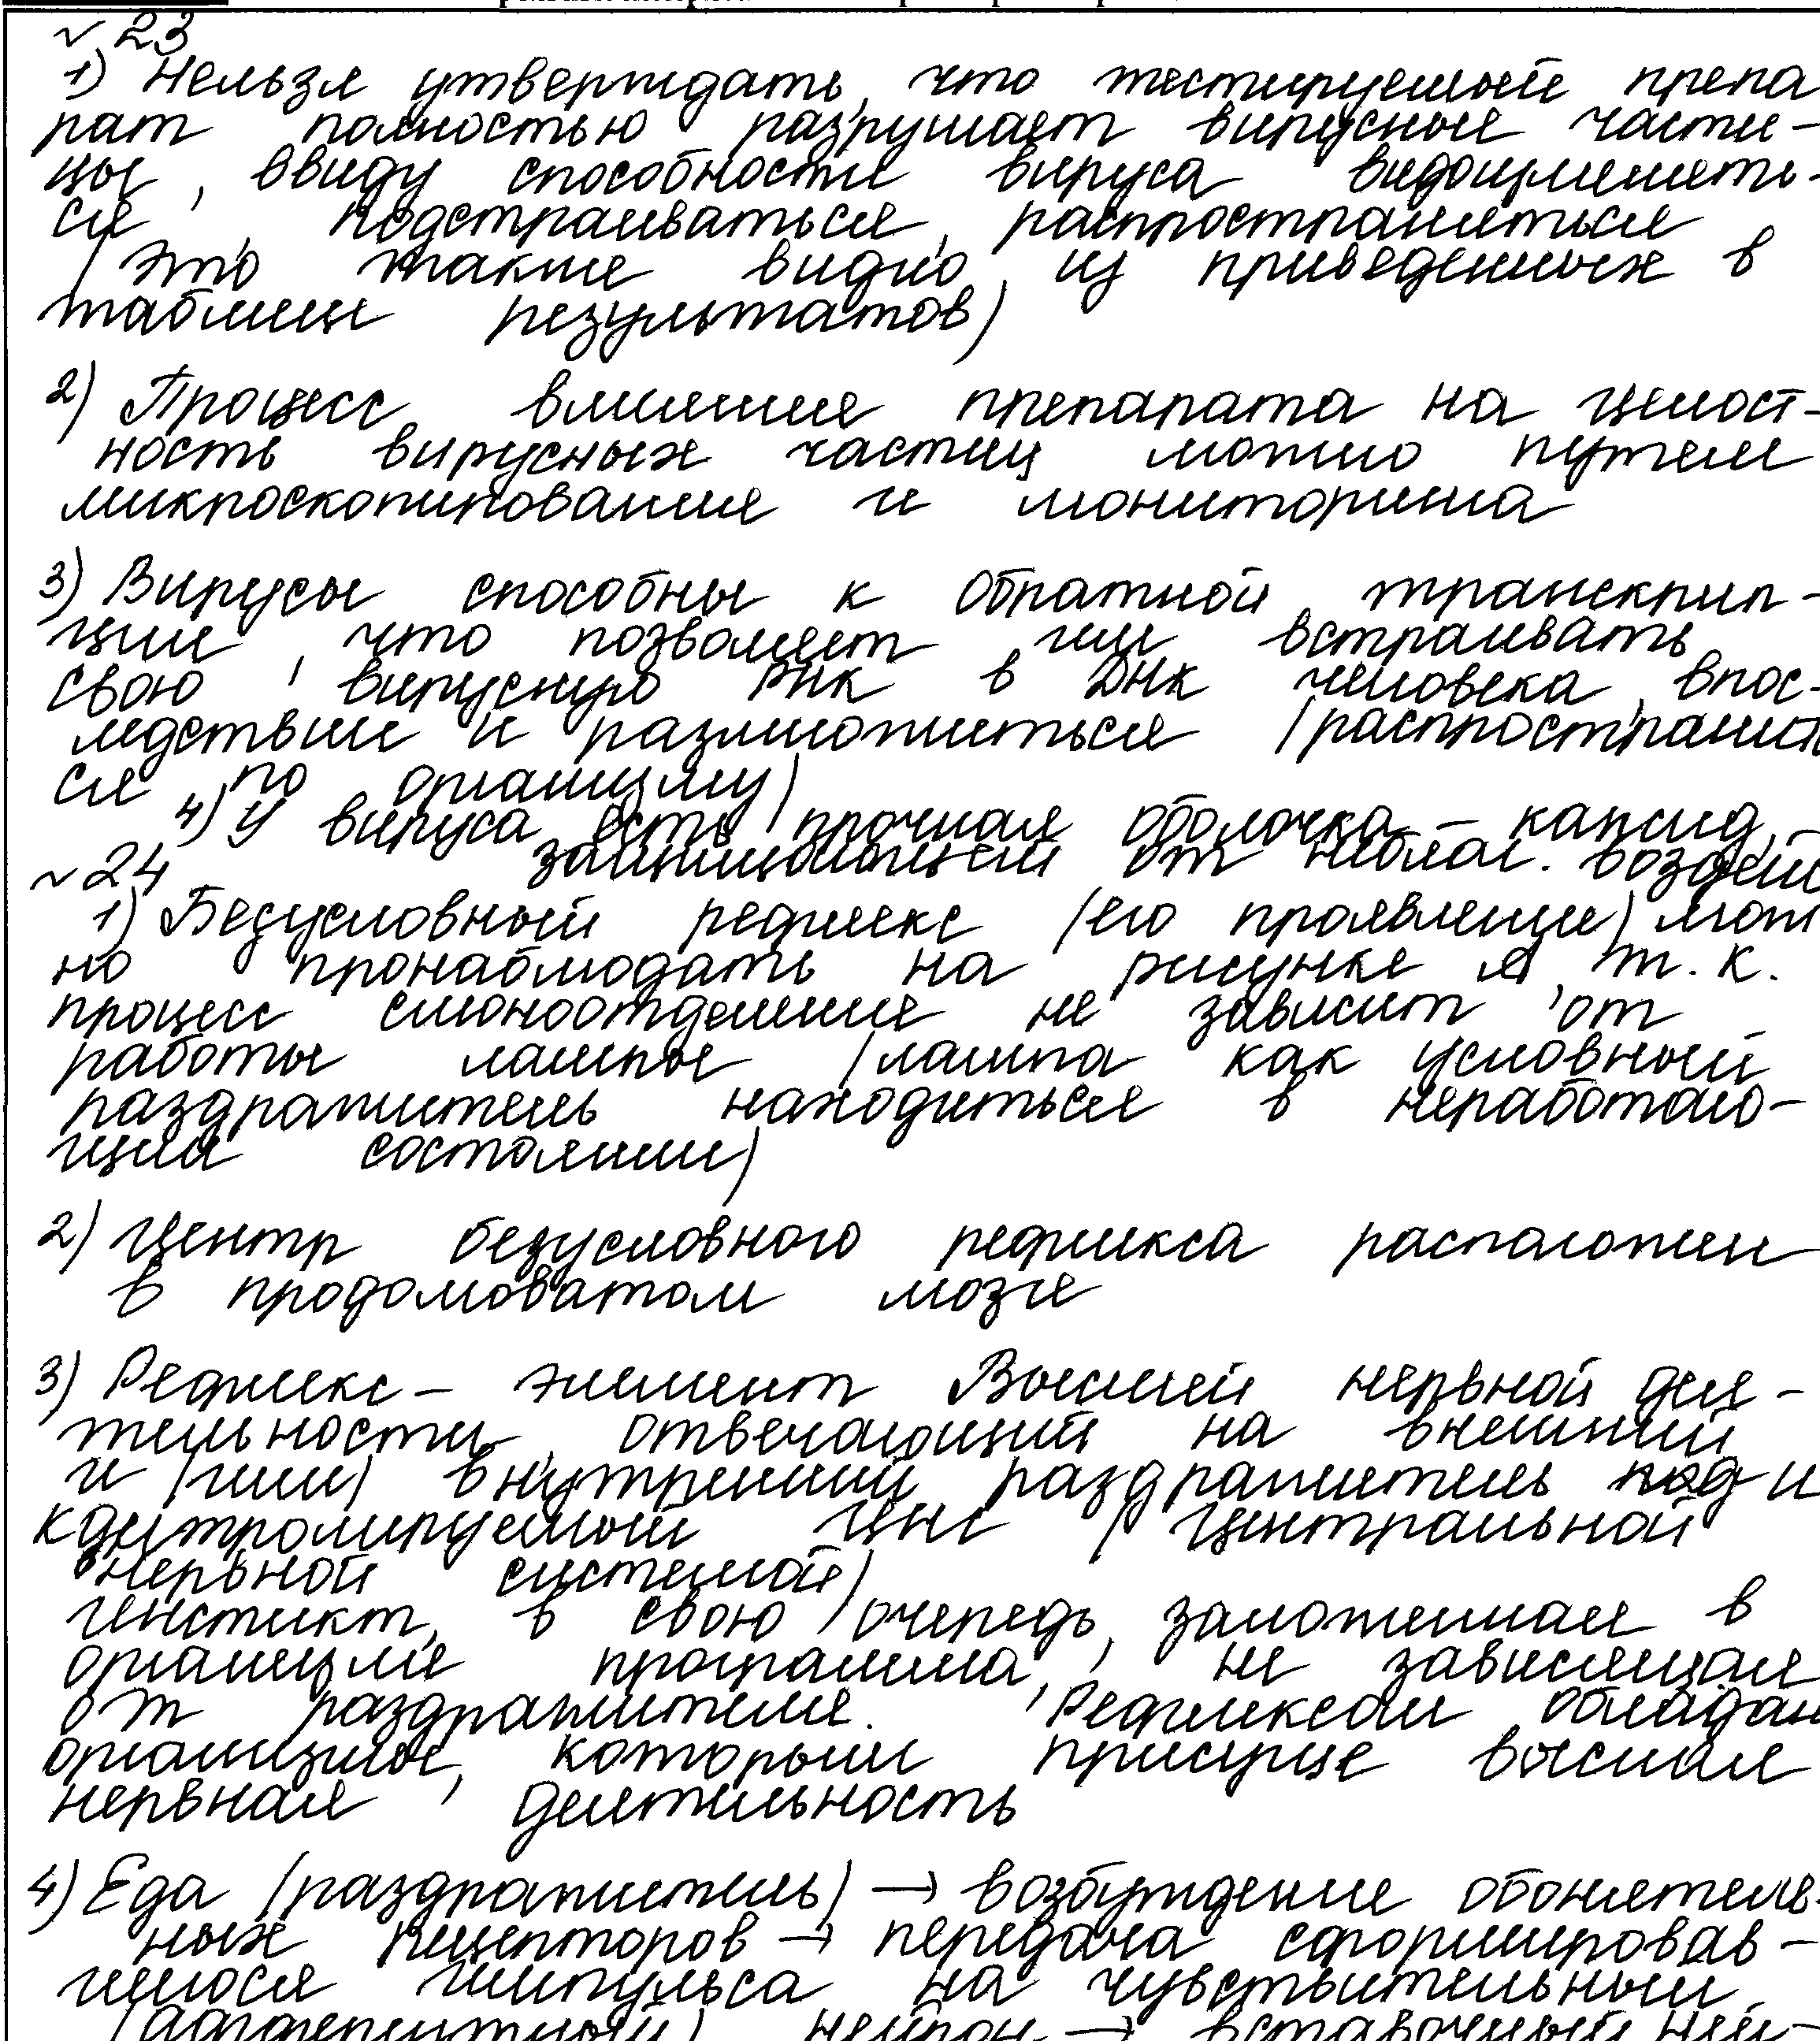 № 23
1) Нельзя утверждать, что тестируемый препа
рат полностью разрушает вирусные части-
цы, ввиду способности вируса видоизменять-
ся, подстраиваться, распространяться
(это также видно из приведенных в
таблице результатов)
2) Процесс влияния препарата на целост-
ность вирусных частиц можно путем
микроскопирования и мониторинга
3) Вирусы способны к обратной транскрип-
ции, что позволяет им встраивать
свою вирусную РНК в ДНК человека, впос-
ледствии и размножиться (распространит
ся по организму)
4) У вируса есть прочная оболочка – капсид,
защищающий от неблаг. воздей
№ 24
1) Безусловный рефлекс (его проявление) мож
но пронаблюдать на рисунке А, т.к.
процесс слюноотделения не зависит от
работы лампы (лампа как условный
раздражитель находиться в неработаю-
щем состоянии)
2) Центр безусловного рефлекса расположен
в продолговатом мозге
3) Рефлекс – элемент Высшей нервной дея-
тельности, отвечающий на внешний
и (или) внутренний раздражитель и
контролируемый ЦНС (Центральной
нервной системой)
инстикт, в свою очередь, заложенная в
организме программа, не зависящая
от раздражителя. Рефлексом обладаю
организмы, которым присуще высшая
нервная деятельность
4) Еда (раздражитель) → возбуждение обонятель-
ных рецепторов → передача сформировав-
шегося импульса на чувствительный
(афферентный) нейрон → вставочный ней-